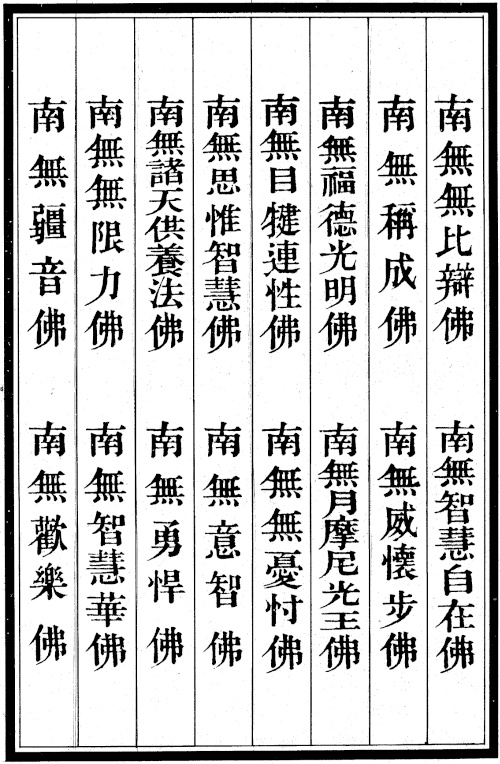 南無無比辯佛　南無智慧自在佛
南無稱成佛　南無威懷步佛
南無福德光明佛　南無月摩尼光王佛
南無目犍連性佛　南無無憂忖佛
南無思惟智慧佛　南無意智佛
南無諸天供養法佛　南無勇悍佛
南無無限力佛　南無智慧華佛
南無疆音佛　南無歡樂佛